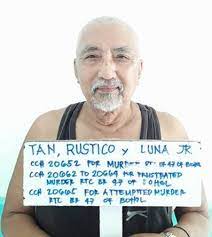 TAN, RUSTICO y LUNA JR
CCH 20652 FOR MURDER RTC BR 47 OF BOHOL
CCH 20662 TO 20664 FOR FRUSTRATED
MURDER RTC BR 47 OF BOHOL
CCH 20665 FOR ATTEMPTED MURDER
RTC BR 47 OF BOHOL